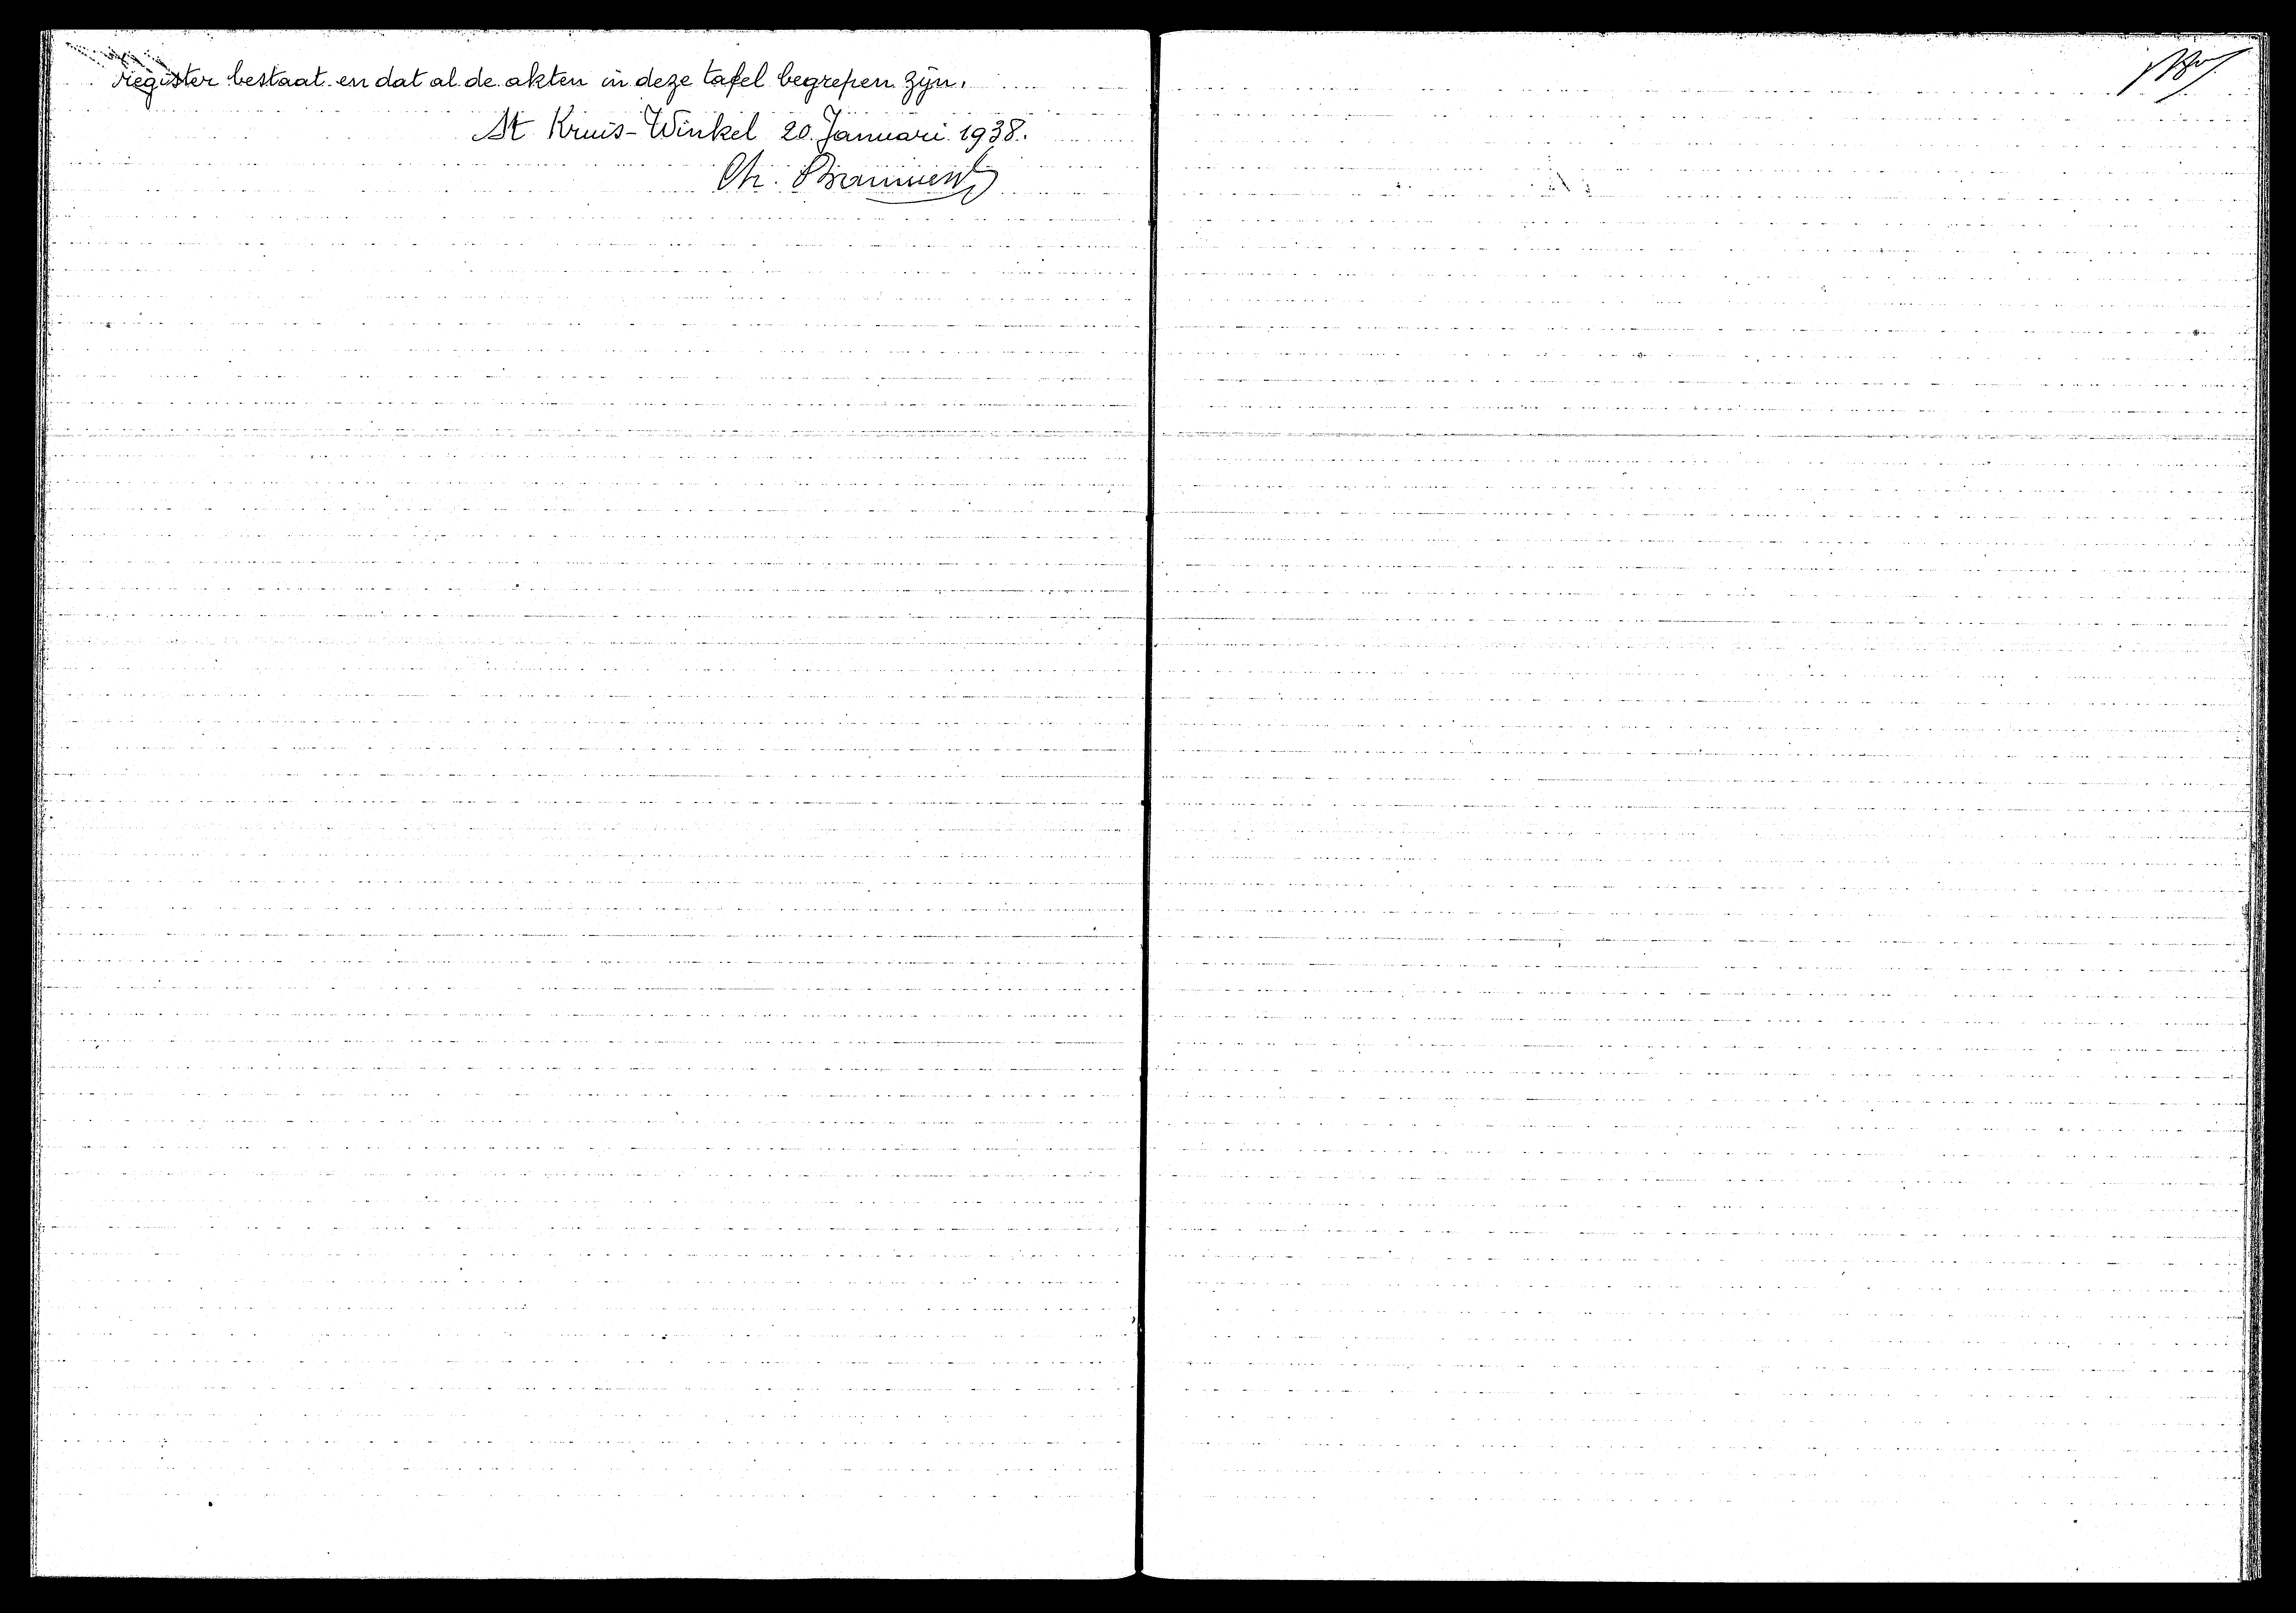 register bestaat en dat al de akten in deze tafel begrepen zijn.
St Kruis-Winkel 20 Januari 1938.
Ch.